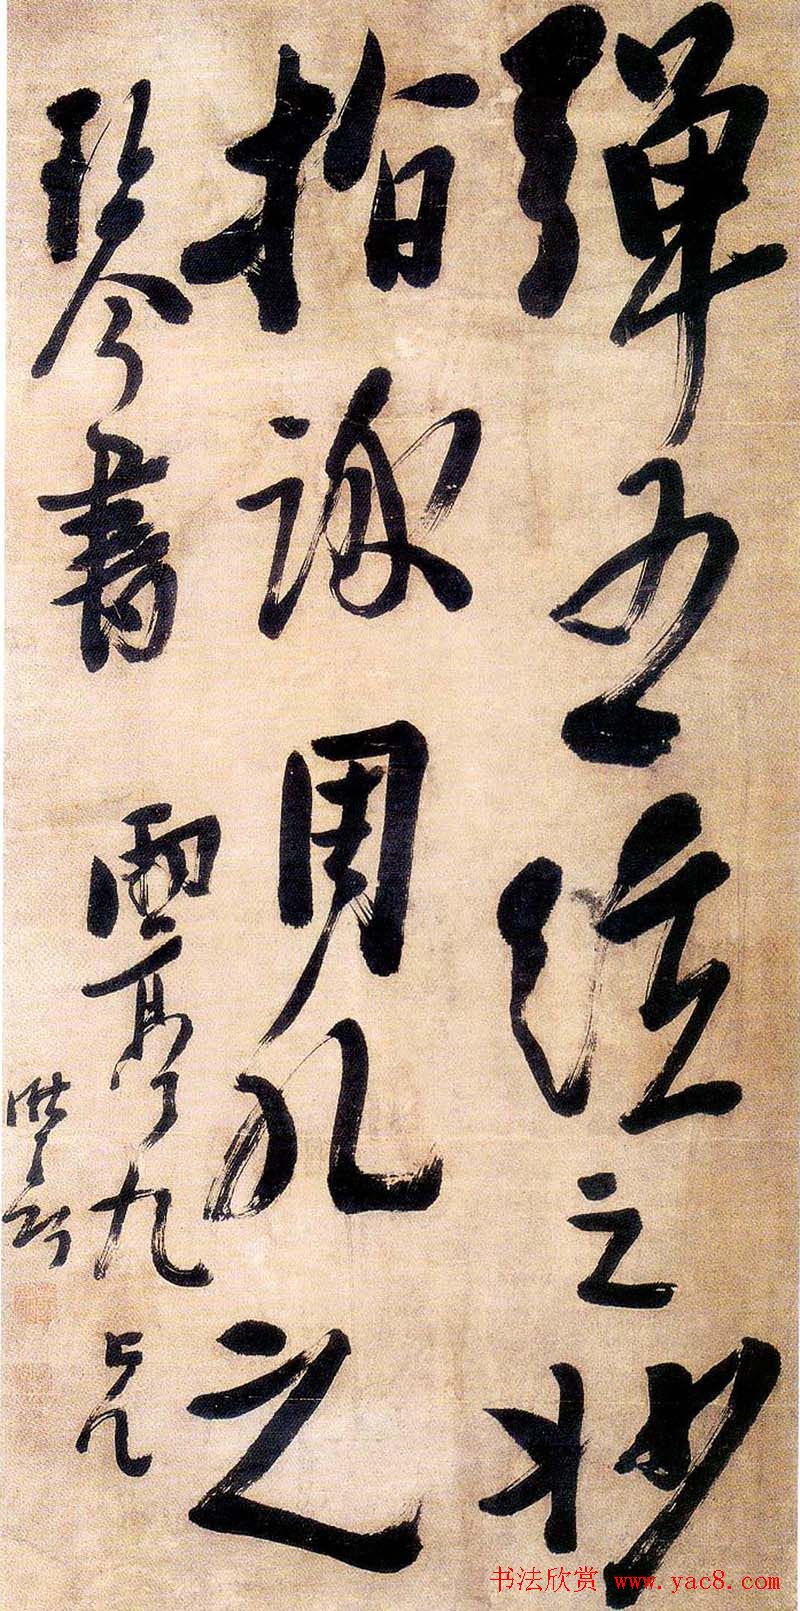 彈五弦之妙
指詠周孔之
琴書 亭九兄
书法欣赏 www.yac8.com